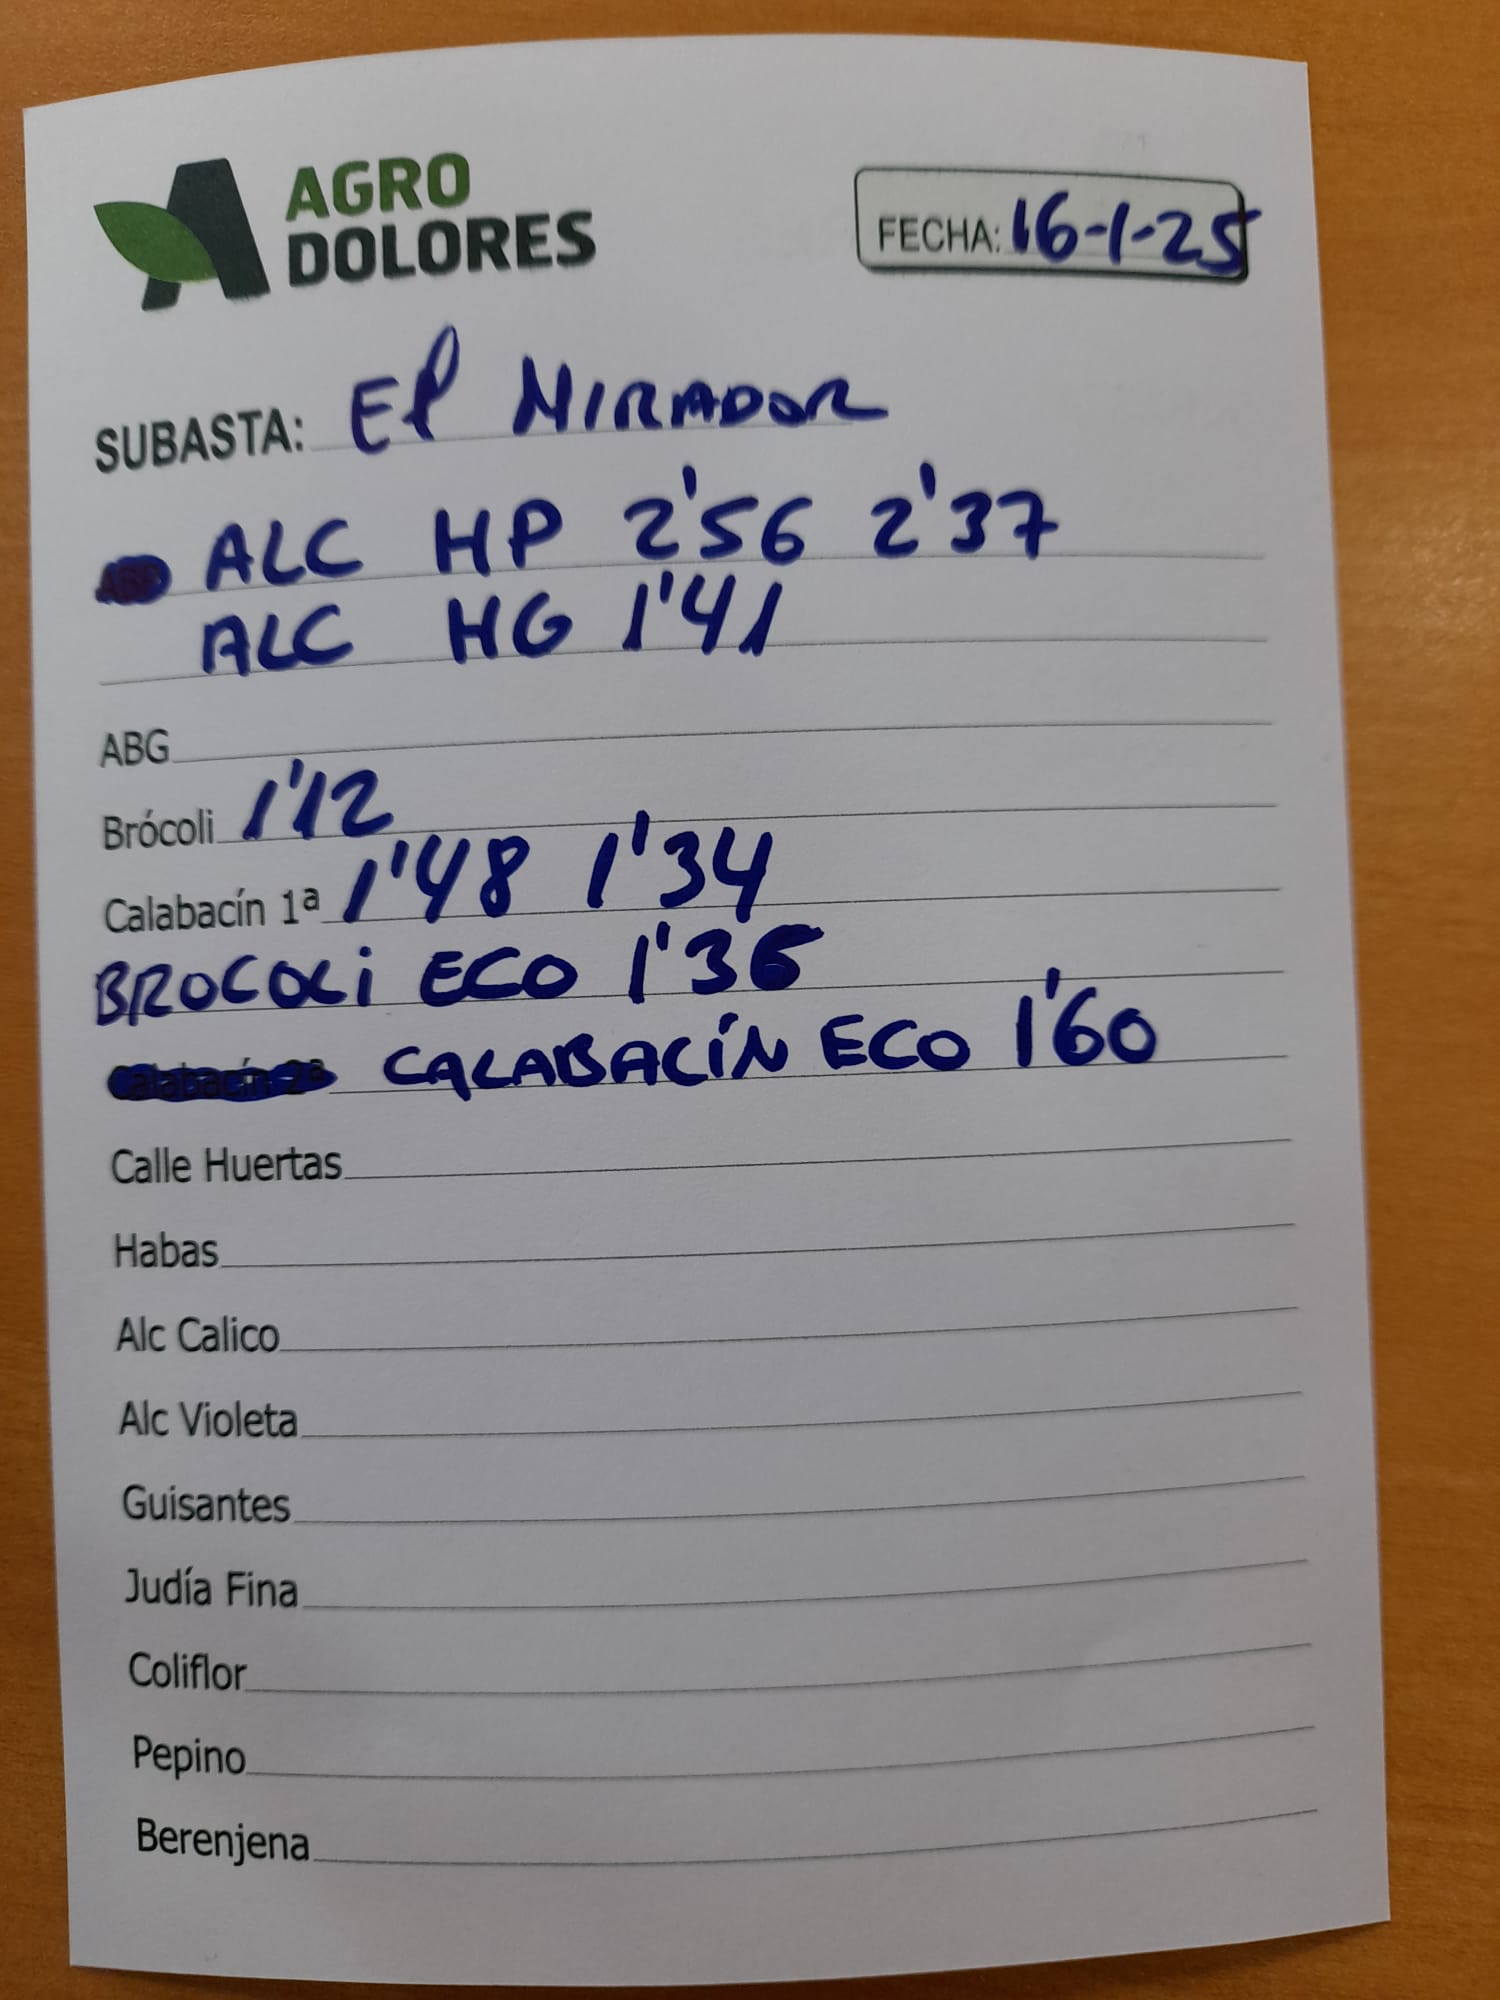 AGRO
DOLORES
FECHA: 16-1-25
SUBASTA: El MIRADOR
ALC HP 2'56 2'37
ALC HG 1'41
ABG
Brócoli 1'12
Calabacín 1ª 1'48 1'34
BROCOLi ECO 1'36
Calabacín 2ª CALABACÍN ECO 1'60
Calle Huertas
Habas
Alc Calico
Alc Violeta
Guisantes
Judía Fina
Coliflor
Pepino
Berenjena